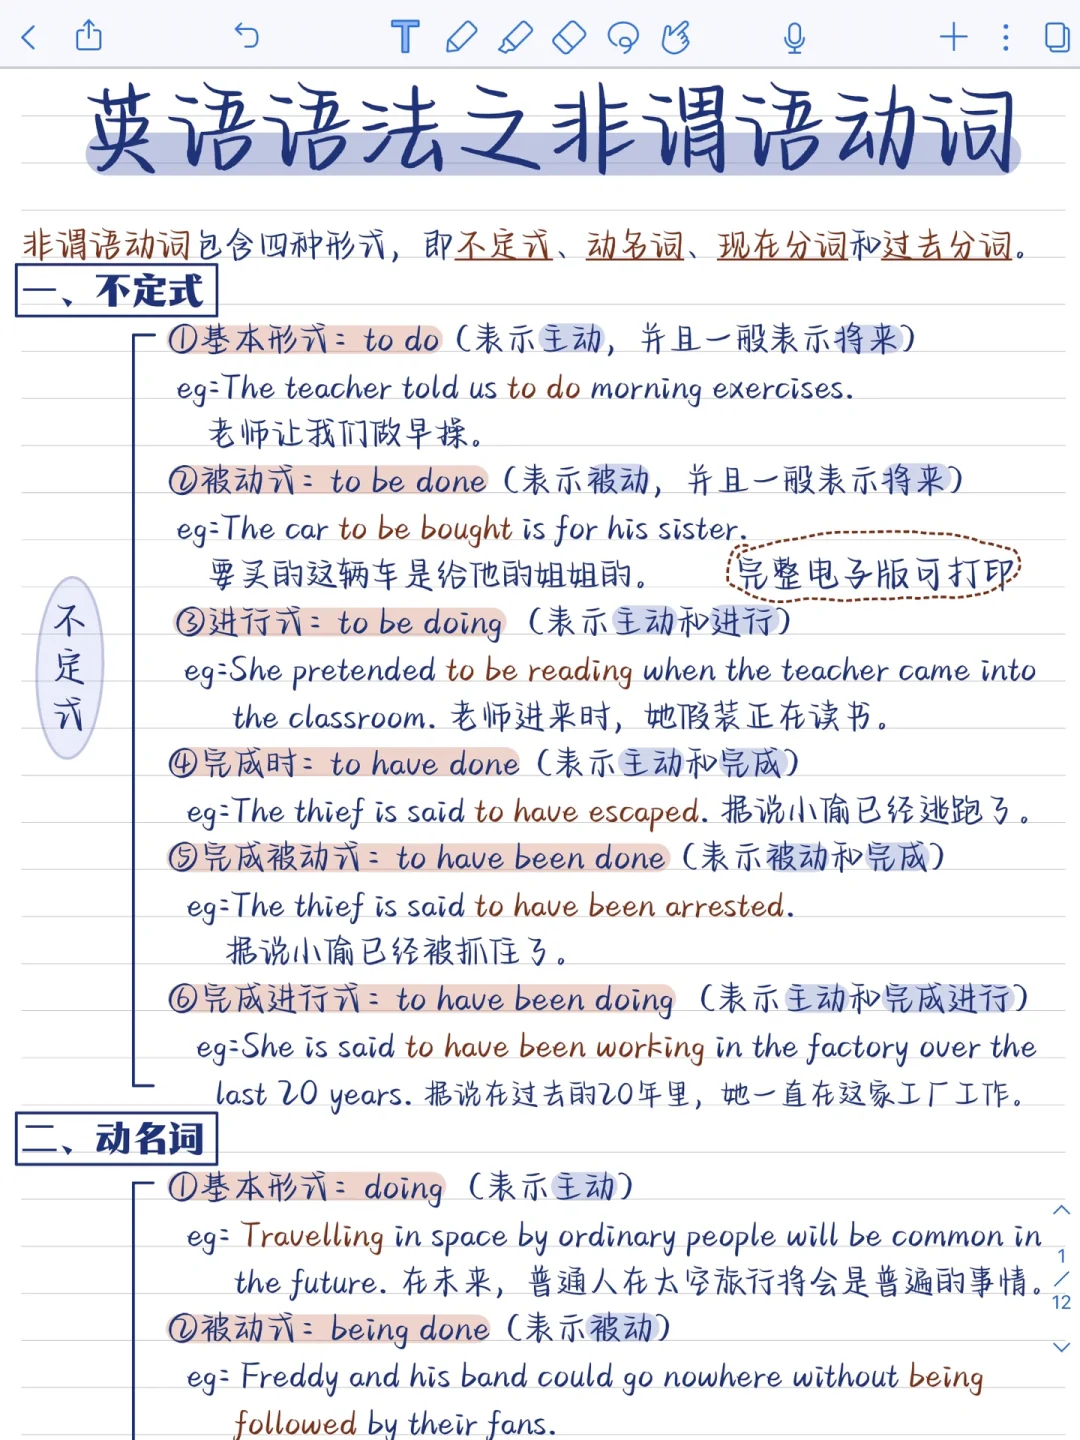 英语语法之非谓语动词
非谓语动词包含四种形式，即不定式、动名词、现在分词和过去分词。
一、不定式
①基本形式：to do（表示主动，并且一般表示将来）
eg:The teacher told us to do morning exercises.
老师让我们做早操。
②被动式：to be done（表示被动，并且一般表示将来）
eg:The car to be bought is for his sister.
要买的这辆车是给他的姐姐的。
完整电子版可打印
③进行式：to be doing（表示主动和进行）
不定式
eg:She pretended to be reading when the teacher came into
the classroom. 老师进来时，她假装正在读书。
④完成时：to have done（表示主动和完成）
eg:The thief is said to have escaped. 据说小偷已经逃跑了。
⑤完成被动式：to have been done（表示被动和完成）
eg:The thief is said to have been arrested.
据说小偷已经被抓住了。
⑥完成进行式：to have been doing（表示主动和完成进行）
eg:She is said to have been working in the factory over the
last 20 years. 据说在过去的20年里，她一直在这家工厂工作。
二、动名词
①基本形式：doing（表示主动）
eg: Travelling in space by ordinary people will be common in
the future. 在未来，普通人在太空旅行将会是普遍的事情。
②被动式：being done（表示被动）
eg: Freddy and his band could go nowhere without being
followed by their fans.
1
/
12